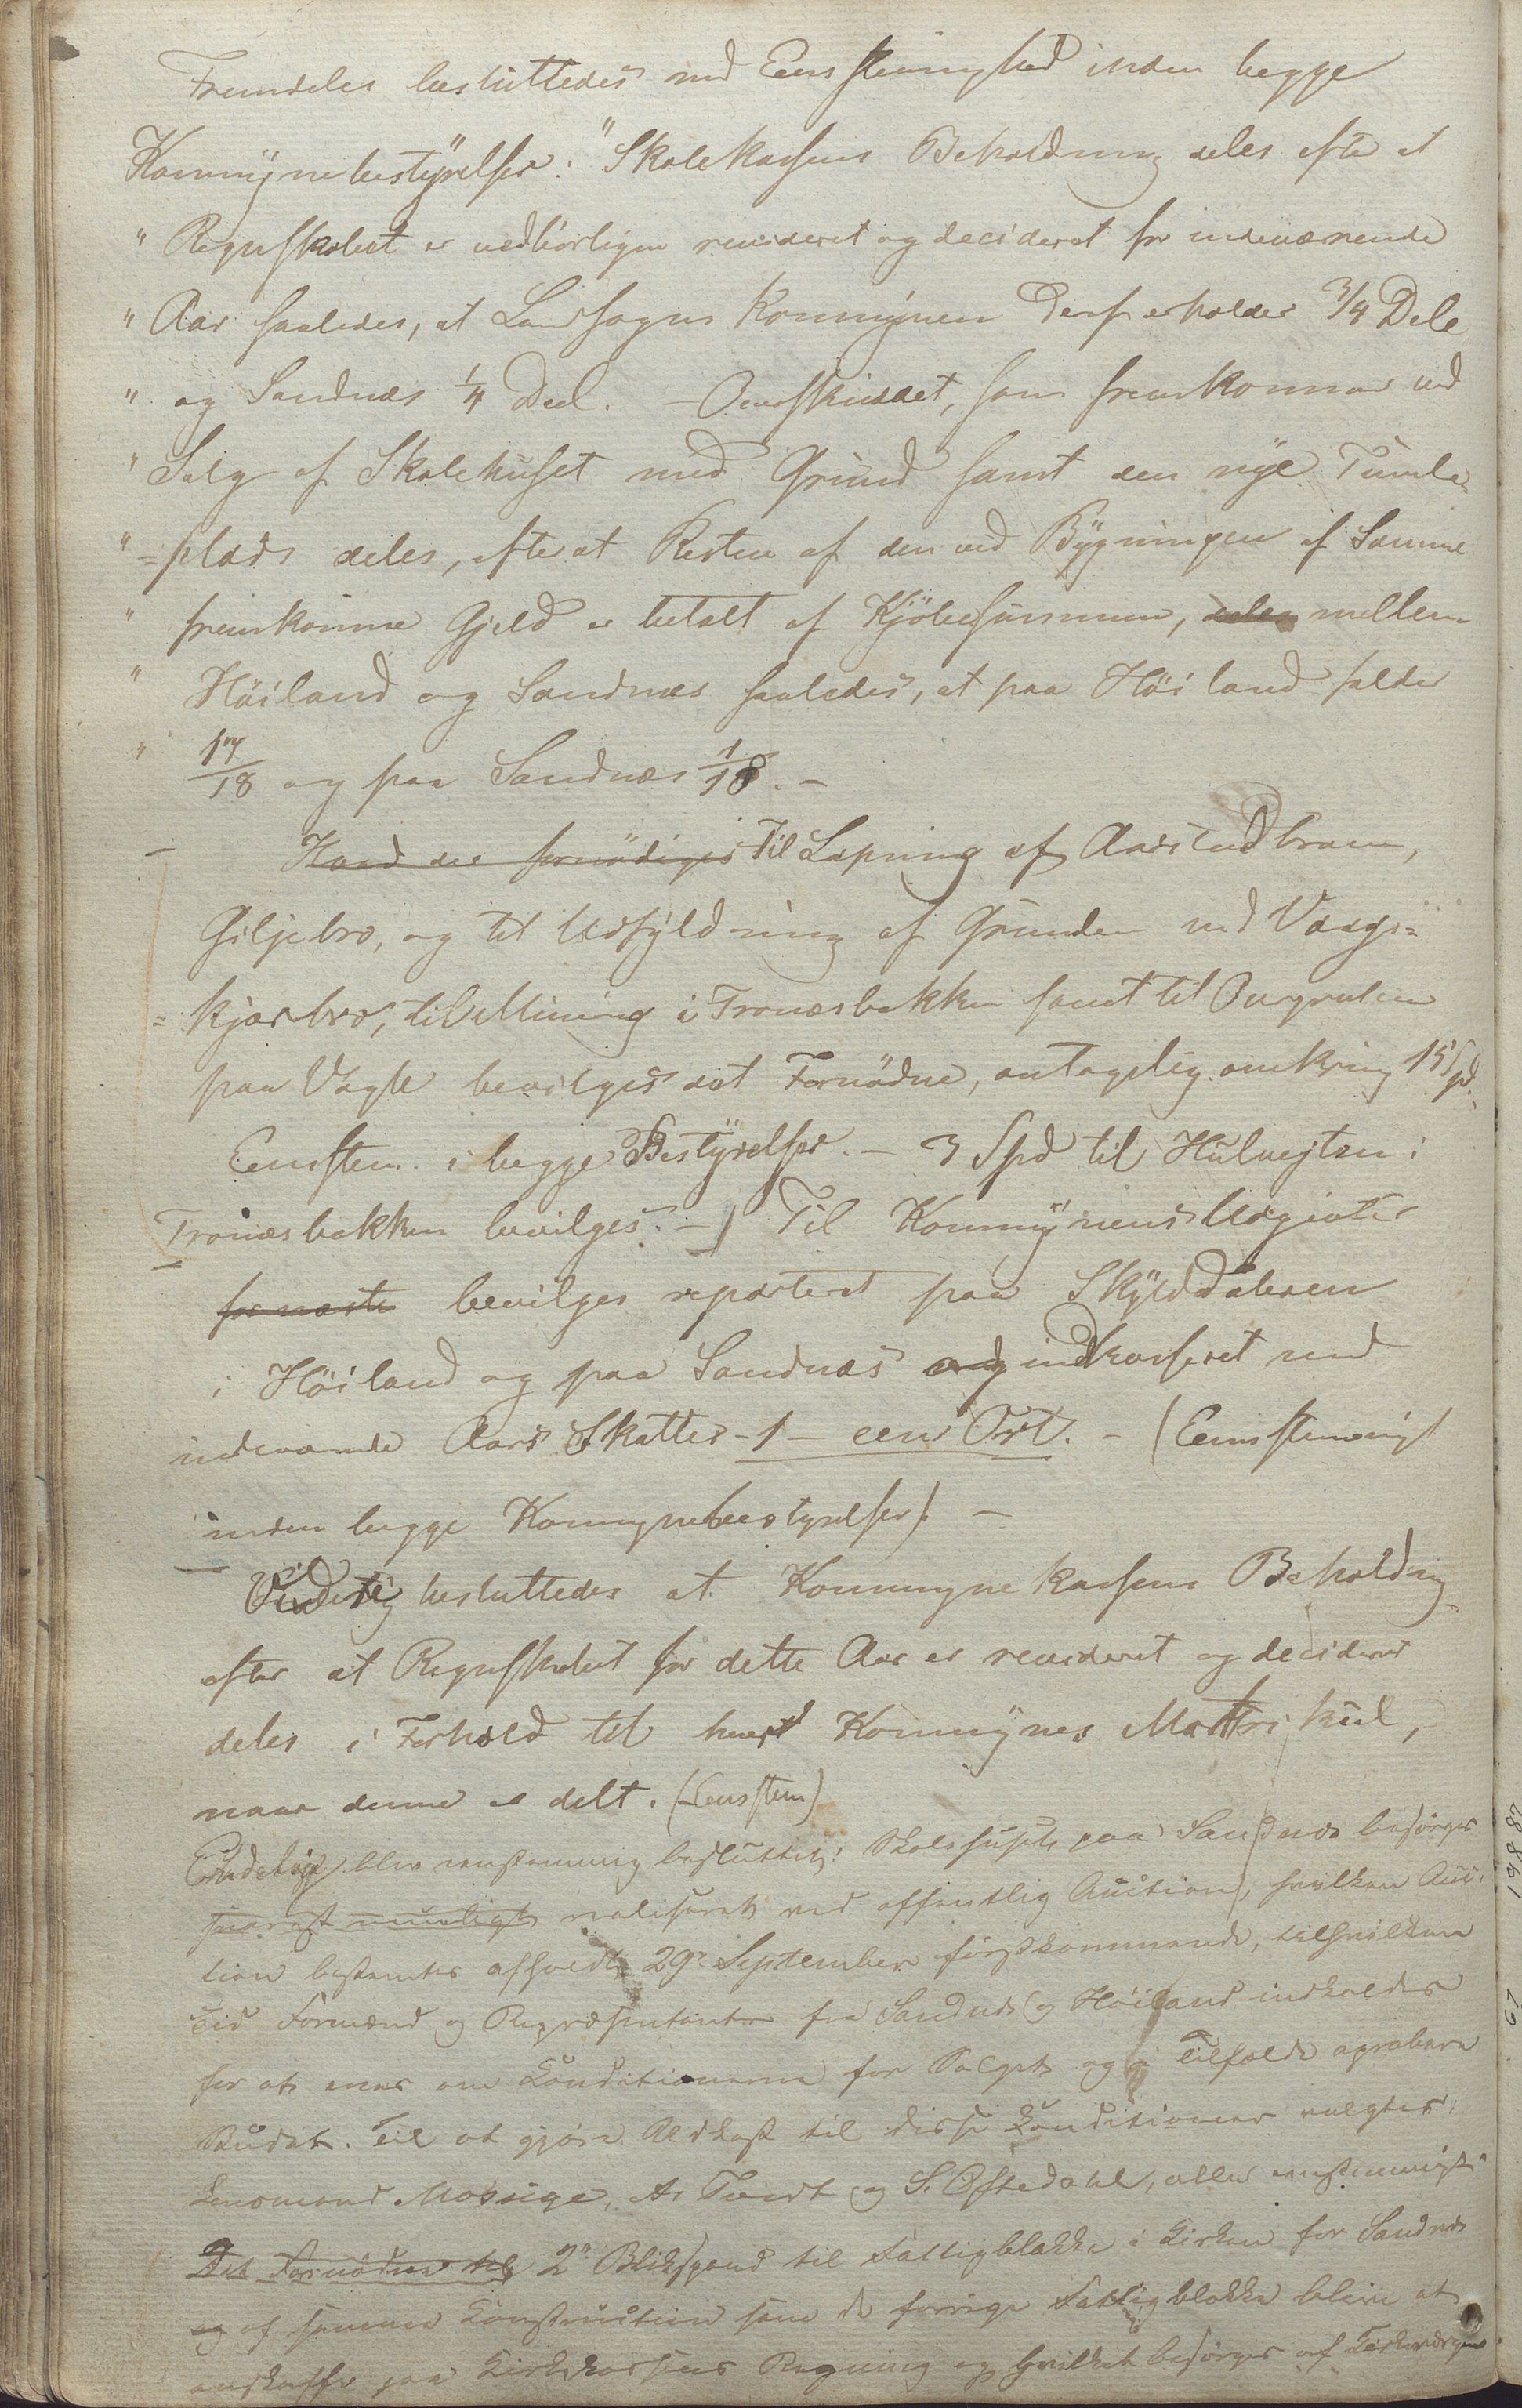 Fremdeles besluttedes med Eenstemmighed inden begge
Kommÿnebestÿrelser: "Skolekassens Beholdning deles efter at
" Regnskabet er vedbörligen revideret og decideret for indeværende
" Aar saaledes, at Landsogns Kommÿnen deraf erholder 3/4 Dele
" og Sandnæs 1/4 Deel. – Overskuddet, som fremkommer ved
" Salg af Skolehuset med Grund samt den nÿe Tumle-
" =plads deles, efterat Resten af den ved Bÿgningen af Samme
" fremkomne Gjeld er betalt af Kjöbesummen, deles mellem
" Höiland og Sandnæs saaledes, at paa Höiland falder
" 17/18 og paa Sandnæs 1/18. –
Hvad der fornödiges Til Lapning af Aarstadbroen,
Giljebro, og til Udfÿldning af Grunden ved Vaags=
=kjærbro, til Mining i Tronæsbakken samt til
paa Vagle bevilges det Fornödne, antagelig omkring 15 Spd.
Eenstem. i begge Bestÿrelser. – 3 Spd til Hulvejten i
Tronæsbakken bevilges. – Til Kommÿnens Udgivter
for næste bevilges reparteret paa Skÿlddaleren
i Höiland og paa Sandnæs og indkasseret med
indeværende Aars Skatter – 1 – een Ort. – (Eenstemmigt
inden begge Kommynebestyrelser). –
besluttedes at Kommynekassens Beholdning
efter at Regnskabet for dette Aar er revideret og decideret
deles i Forhold til hvert Kommÿnes Mattrikul,
naar denne er delt. (Eenstem)
Endelig blev eenstemmig besluttet: Skolehuset paa Sandnæs besörges
snarest muligt realiseret ved offentlig Auction, hvilken Auc-
tion bestemtes afholdt 29de September förstkommende, til hvilken
Tid Formænd og Repræsentanter fra Sandnæs og Höiland indkaldes
for at enes om Conditionerne for Salget og i Tilfælde aprobere
Budet. Til at gjöre Udkast til disse Conditioner valgtes:
Lensmand Mossige, A. Tvedt og S. Oftedahl, alle eenstemmigt
Det Fornödne til 2de Blikspand til Fattigblokke i Kirken for Sandnæs
og af samme Construction som de forrige Fattigblokke blive at
anskaffe paa Kirkekassens Regning og hvilket besörges af Kirkeværgen